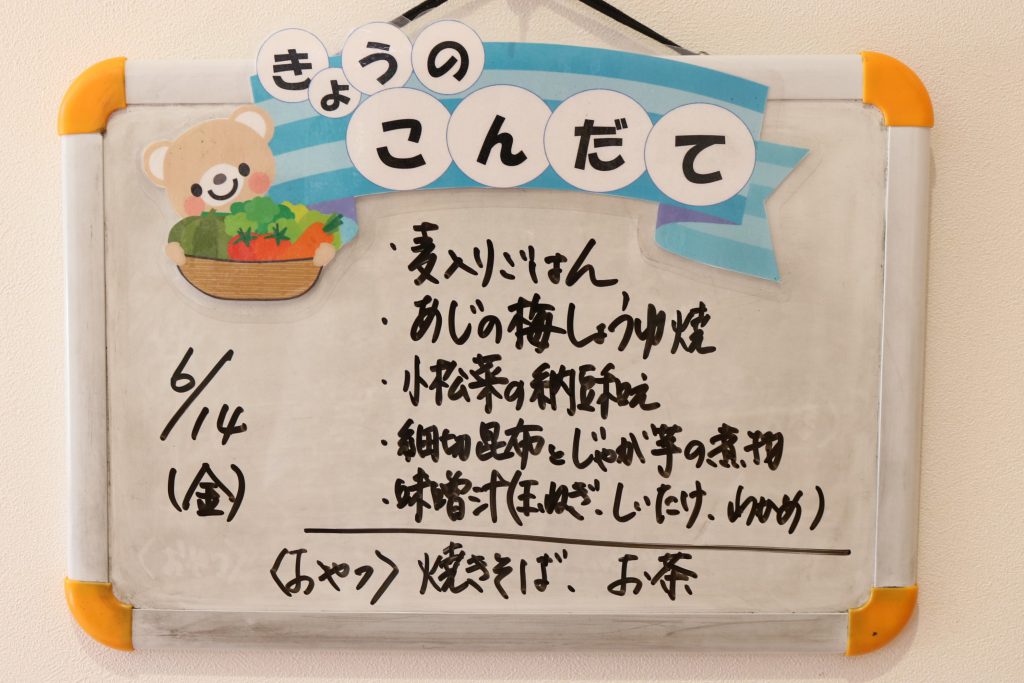 きょうの
こんだて
・麦入りごはん
・あじの梅しょうゆ焼
・小松菜の納豆和え
・細切昆布とじゃが芋の煮物
・味噌汁(玉ねぎ、しいたけ、わかめ)
6/14
(金)
〈おやつ〉焼きそば、お茶